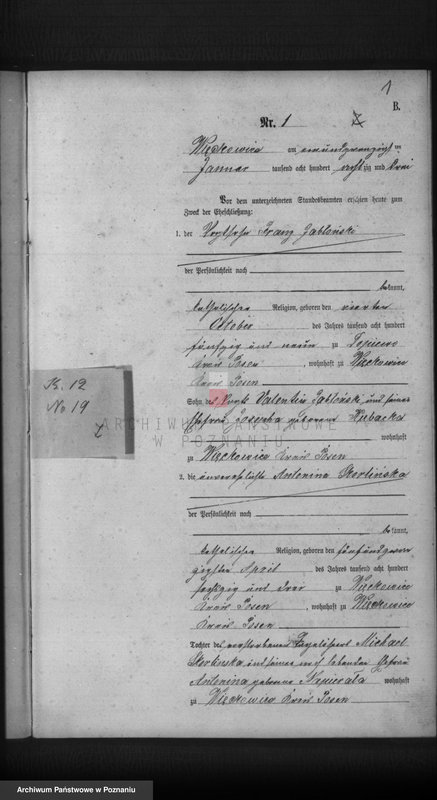 1
B.
Nr. 1
Więckowice am einundzwanzigsten
Januar tausend acht hundert achtzig und drei
Vor dem unterzeichneten Standesbeamten erschien heute zum
Zweck der Eheschließung:
1. der Vogtsohn Franz Jabłoński
der Persönlichkeit nach
bekannt,
katholischer Religion, geboren den vierten
October des Jahres tausend acht hundert
fünfzig und neun zu
Kreis Posen, wohnhaft zu Więckowice
Kreis Posen
Sohn des Vogts Valentin Jabłoński und seiner
Ehefrau geborene Kubacka
wohnhaft
zu Więckowice Kreis Posen
2. die unverehelichte Antonina
der Persönlichkeit nach
bekannt,
katholischer Religion, geboren den fünfundzwan
zigsten April des Jahres tausend acht hundert
sechzig und drei zu Więckowice
Kreis Posen, wohnhaft zu Więckowice
Kreis Posen
Tochter des verstorbenen Tagelöhners Michael
und seiner noch lebenden Ehefrau
Antonina geborene wohnhaft
zu Więckowice Kreis Posen
K. 12
No 19
ARCHIWUM PAŃSTWOWE
W POZNANIU
Archiwum Państwowe w Poznaniu